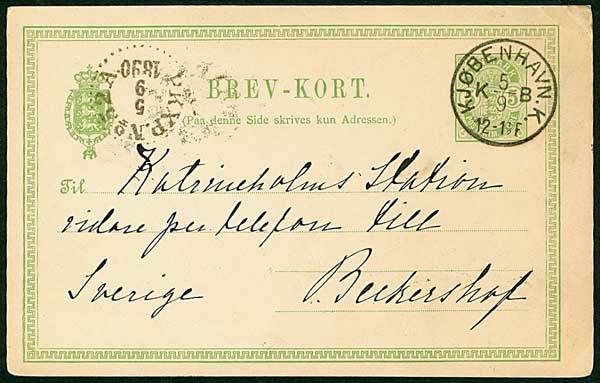 BREV-KORT.
(Paa denne Side skrives kun Adressen.)
KJØBENHAVN.K.
5
K B
9
12-1 E
PKXP.No 2A
5
9
1890
Til Katrineholms Station
vidare per telefon till
Sverige Beckershof